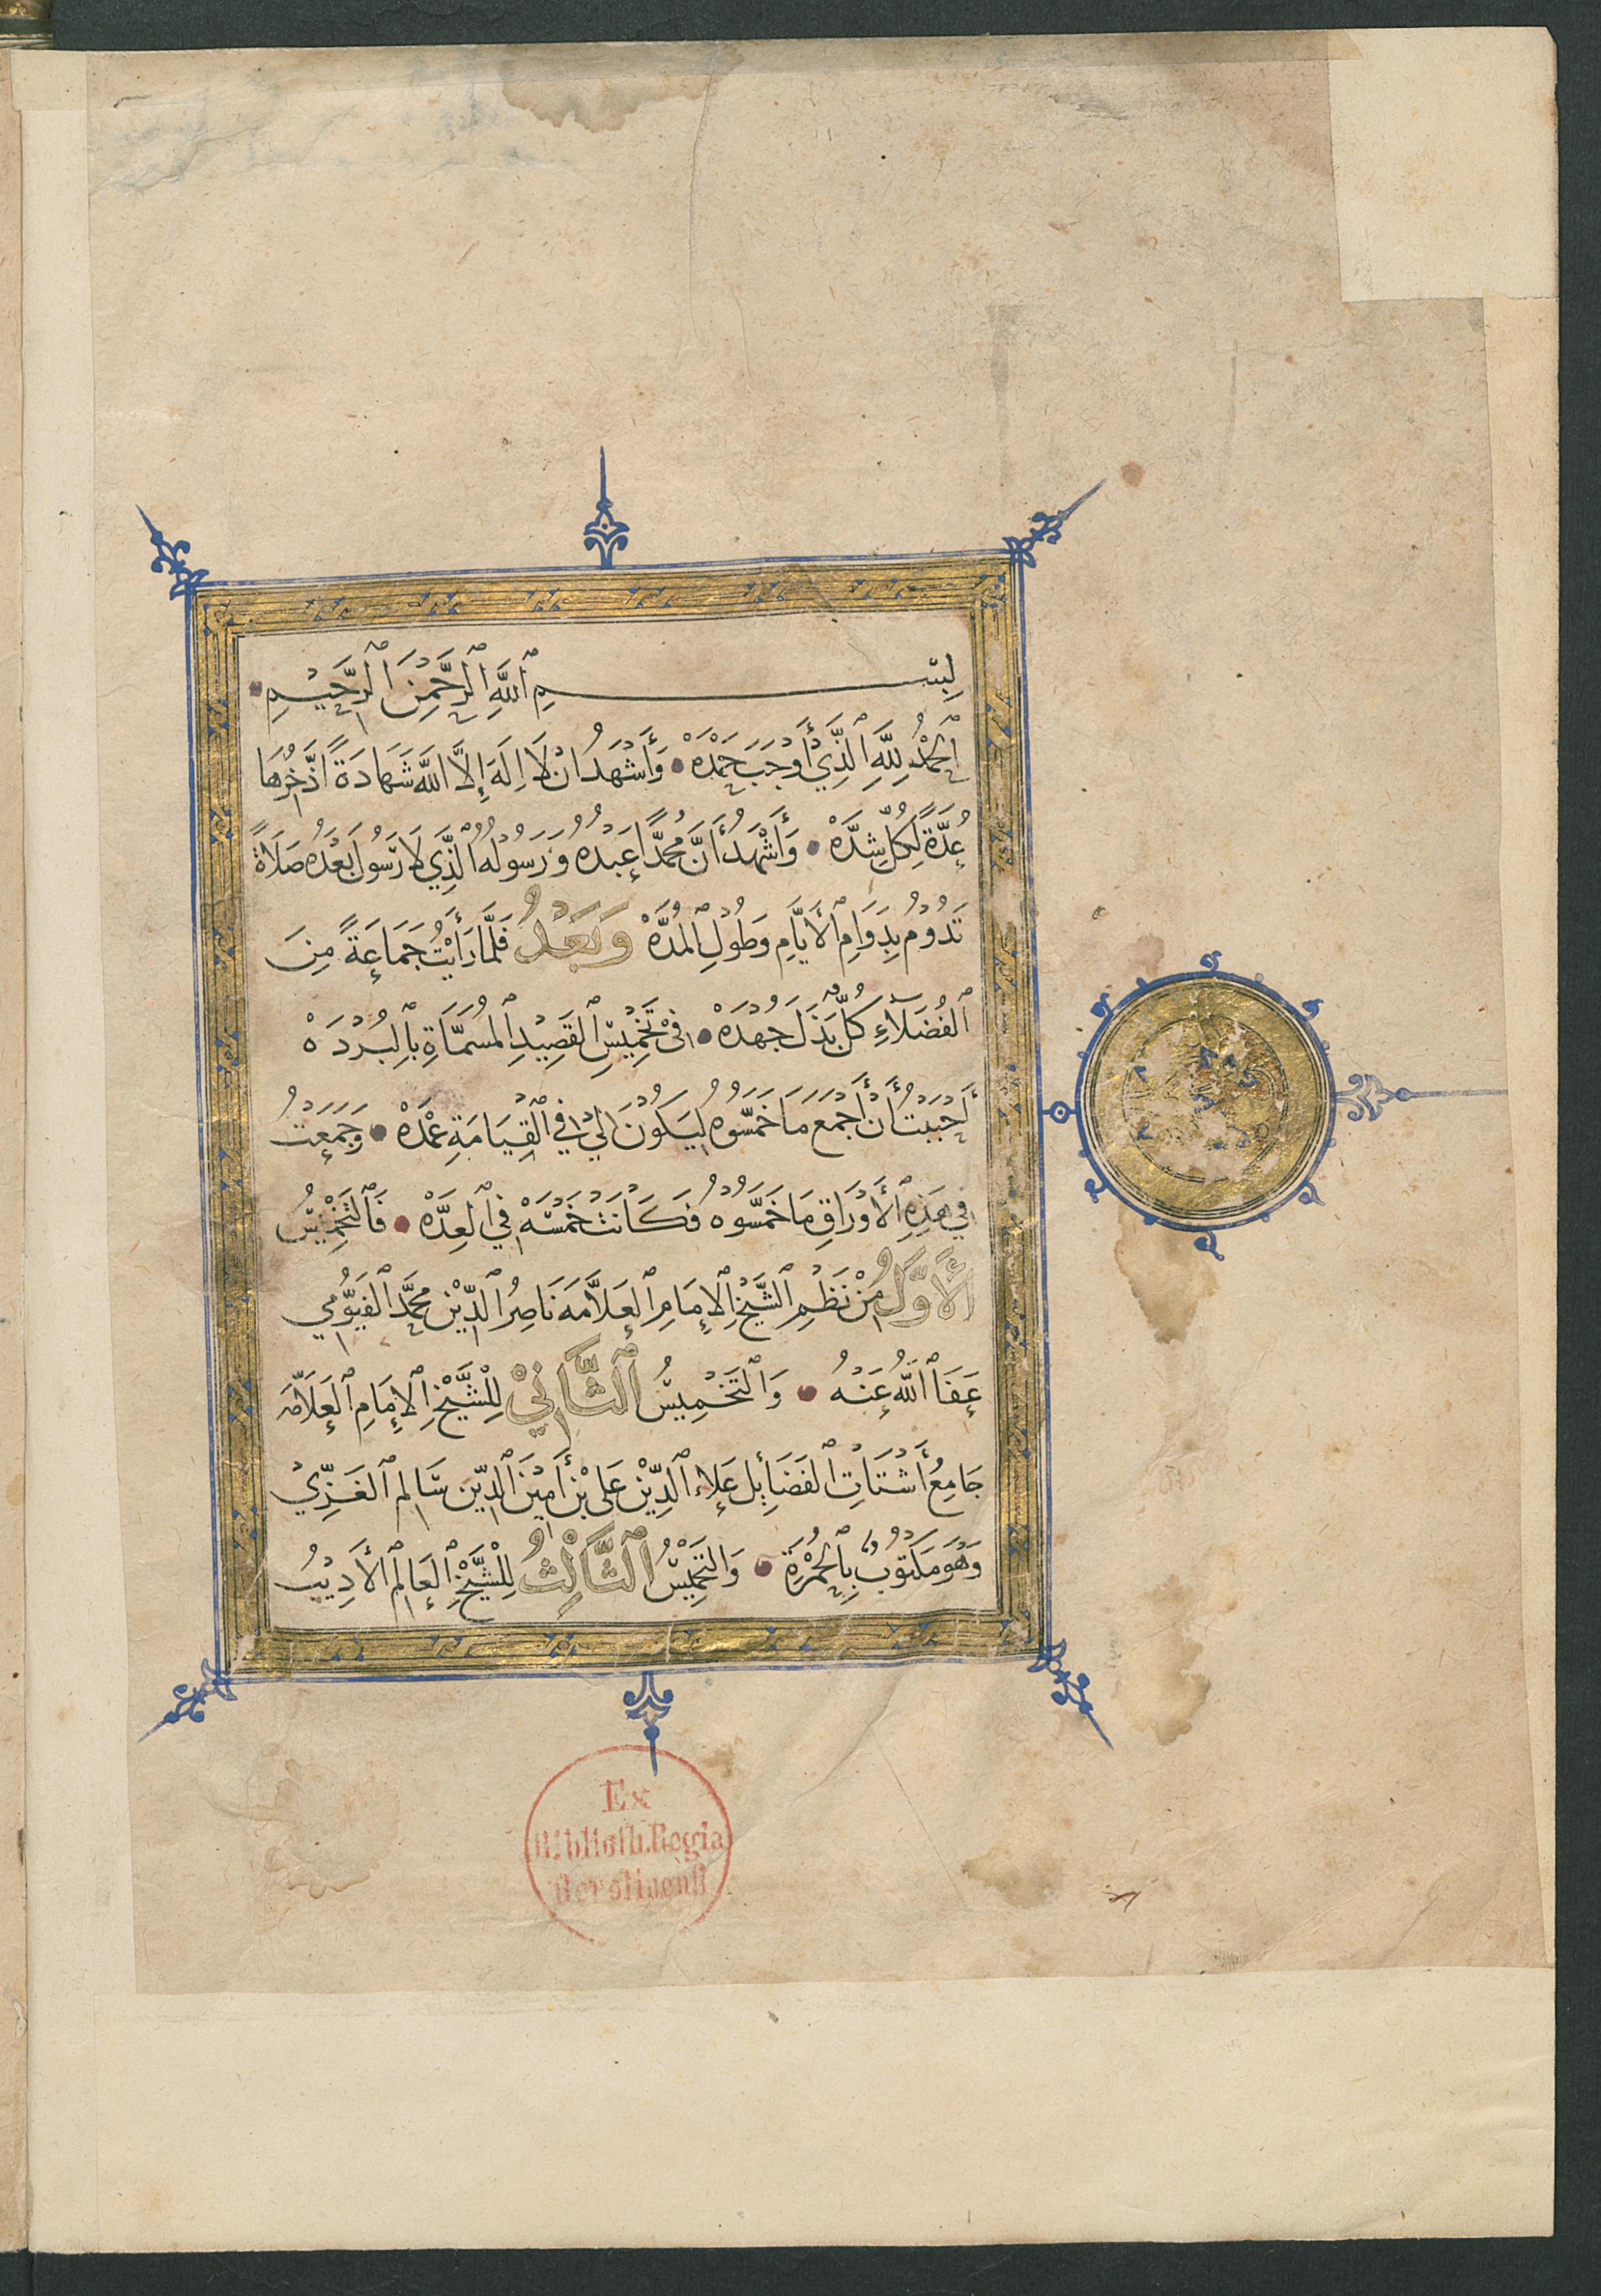 بِسْمِ ٱللَّهِ ٱلرَّحْمٰنِ ٱلرَّحِيْمِ
ٱلْحَمْدُ لِلَّهِ ٱلَّذِيْ أَوْجَبَ حَمْدَهْ وَأَشْهَدُ انْ لَا اِلَهَ إِلَّا اللَّه شَهَادَةً اَذَّخِرُهَا
عُدَّةً لِكُلِّ شِدَّهْ وَأَشْهَدُ أَنَّ مُحَمَّدًا عَبْدُهُ وَرَسُوْلُهُ ٱلَّذِي لَا رَسُوْلَ بَعْدَهُ صَلَاةً
تَدُوْمُ بِدَوَامِ ٱلْأَيَّامِ وَطُوْلِ ٱلْمُدَّهْ وَبَعْدُ فَلَمَّا رَأَيْتُ جَمَاعَةً مِنَ
ٱلْفُضَلَآءِ كُلٌّ بَذَلَ جُهْدَهْ فِىْ تَخْمِيْسِ ٱلْقَصِيْدِ ٱلْمُسَمَّاةِ بِٱلْبُرْدَهْ
أَحْبَبْتُ أَنْ أَجْمَعَ مَا خَمَّسُوْهُ لِيَكُوْنَ لِيْ فِي ٱلْقِيَامَةِ عُمْدَهْ وَجَمَعْتُ
فِي هَذِهِ ٱلْأَوْرَاقِ مَا خَمَّسُوْهُ فَكَانَتْ خَمْسَهْ فِي ٱلْعِدَّهْ فَٱلتَّخْمِيْسُ
ٱلْأَوَّلُ مِنْ نَظْمِ ٱلشَّيْخِ ٱلْإِمَامِ ٱلْعَلَّامَه نَاصِرُ ٱلدِّيْنِ مُحَمَّد ٱلْفَيُّوْمِي
عَفَا ٱللَّهُ عَنْهُ وَالتَّخْمِيْسُ ٱلثَّانِيْ لِلْشَّيْخِ ٱلْإِمَامِ ٱلْعَلَّامَه
جَامِعُ أَشْتَاتِ ٱلْفَضَائِل عَلَاء ٱلدِّيْن عَلي بْن أَمِيْنِ ٱلدِّيْن سَالم ٱلْغَزِّيْ
وَهُوَ مَكْتُوْبٌ بِٱلْحُمْرَةِ وَالتَّخْمِيْسُ ٱلثَّالِثُ لِلْشَّيْخِ ٱلْعَالِم الْأَدِيْبُ
Ex
Biblioth. Regia
Berolinensi